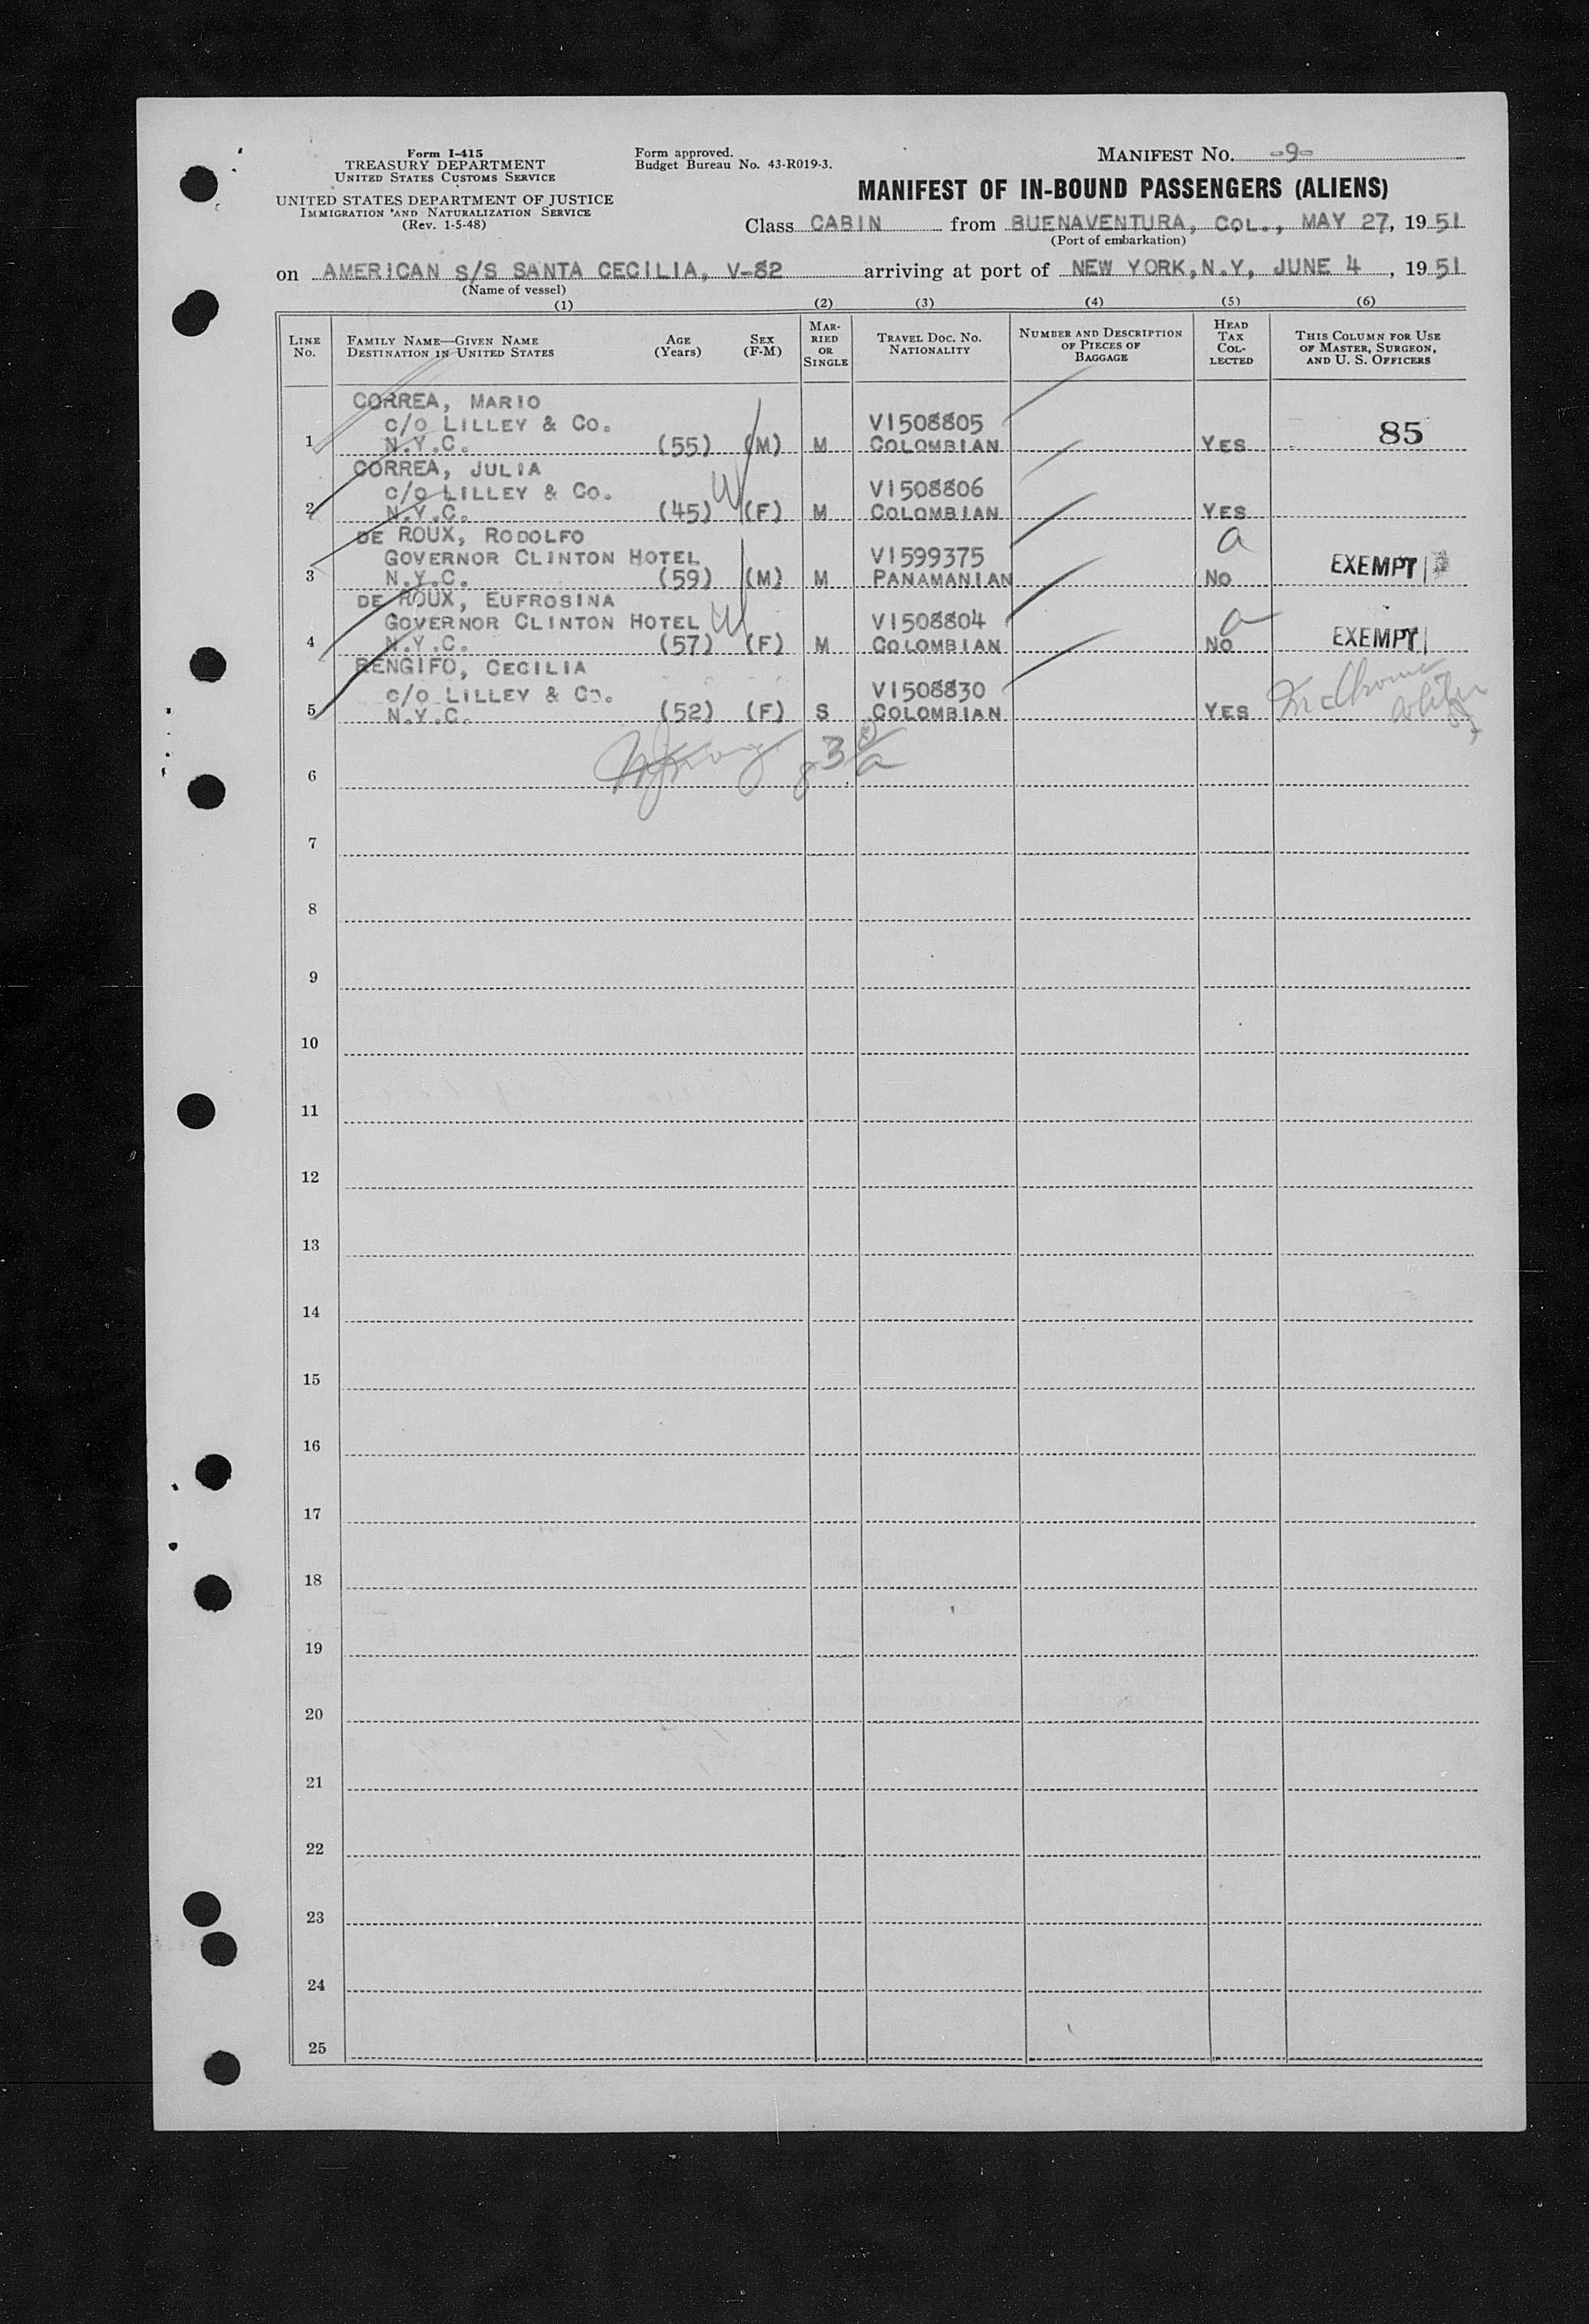 Form I-415
TREASURY DEPARTMENT
UNITED STATES CUSTOMS SERVICE
UNITED STATES DEPARTMENT OF JUSTICE
IMMIGRATION AND NATURALIZATION SERVICE
(Rev. 1-5-48)
Form approved.
Budget Bureau No. 43-R019-3.
MANIFEST NO. -9-
MANIFEST OF IN-BOUND PASSENGERS (ALIENS)
Class CABIN from BUENAVENTURA, COL., MAY 27, 1951
(Port of embarkation)
on AMERICAN S/S SANTA CECILIA, V-82 arriving at port of NEW YORK, N.Y, JUNE 4, 1951
(Name of vessel)
(1) (2) (3) (4) (5) (6)
LINE NO.
FAMILY NAME—GIVEN NAME
DESTINATION IN UNITED STATES
AGE (Years)
SEX (F-M)
MARRIED OR SINGLE
TRAVEL DOC. NO. NATIONALITY
NUMBER AND DESCRIPTION OF PIECES OF BAGGAGE
HEAD TAX COLLECTED
THIS COLUMN FOR USE OF MASTER, SURGEON, AND U. S. OFFICERS
CORREA, MARIO
C/O LILLEY & CO. VI508805
1 N.Y.C. (55) (M) M COLOMBIAN YES 85
CORREA, JULIA
C/O LILLEY & CO. VI508806
2 N.Y.C. (45) (F) M COLOMBIAN YES
DE ROUX, RODOLFO a
GOVERNOR CLINTON HOTEL VI599375
3 N.Y.C. (59) (M) M PANAMANIAN NO EXEMPT
DE ROUX, EUFROSINA a
GOVERNOR CLINTON HOTEL VI508804
4 N.Y.C. (57) (F) M COLOMBIAN NO EXEMPT
RENGIFO, CECILIA
C/O LILLEY & CO. VI508830
5 N.Y.C. (52) (F) S COLOMBIAN YES
6
7
8
9
10
11
12
13
14
15
16
17
18
19
20
21
22
23
24
25